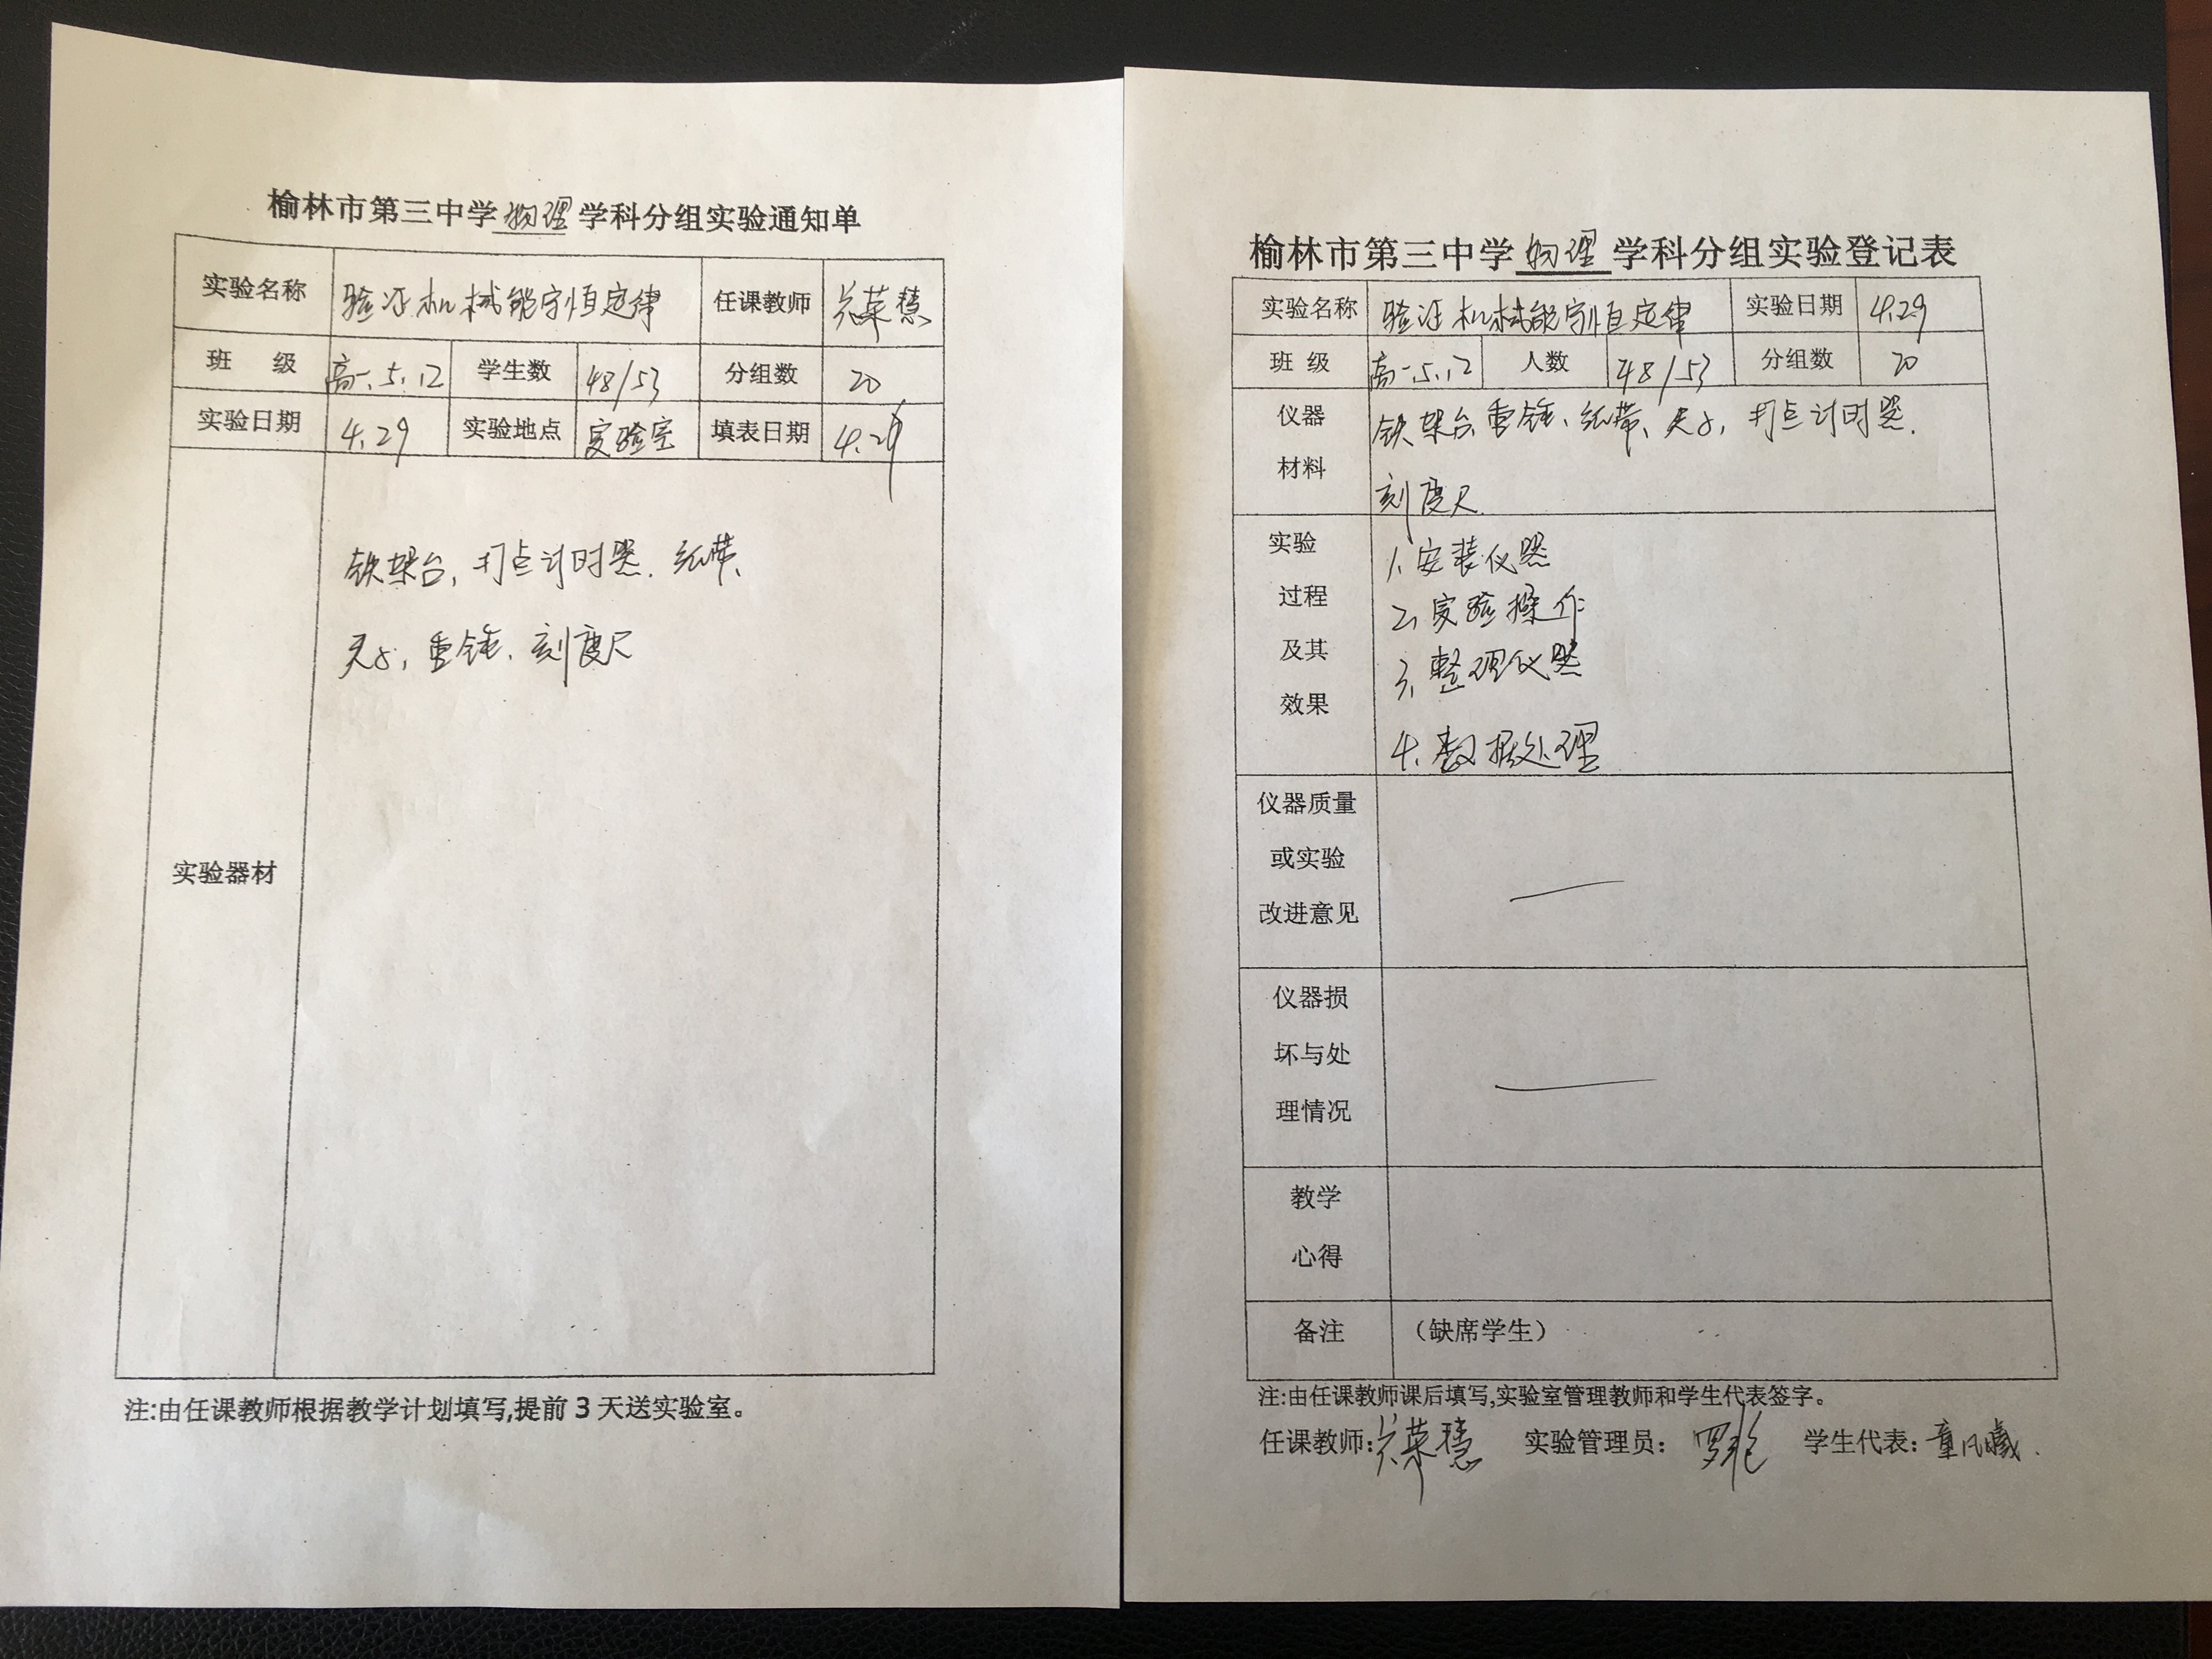 榆林市第三中学物理学科分组实验通知单
实验名称 验证机械能守恒定律 任课教师 兰菜慧
班 级 高一.5.12 学生数 48/53 分组数 20
实验日期 4.29 实验地点 实验室 填表日期 4.29
铁架台、打点计时器、纸带、
夹子、重锤、刻度尺
实验器材
注:由任课教师根据教学计划填写,提前3天送实验室。
榆林市第三中学物理学科分组实验登记表
实验名称 验证机械能守恒定律 实验日期 4.29
班 级 高一.5.12 人数 48/53 分组数 20
仪器
材料
铁架台、重锤、纸带、夹子、打点计时器、
刻度尺
实验
过程
及其
效果
1、安装仪器
2、实验操作
3、整理仪器
4、数据处理
仪器质量
或实验
改进意见
仪器损
坏与处
理情况
教学
心得
备注 (缺席学生)
注:由任课教师课后填写,实验室管理教师和学生代表签字。
任课教师: 实验管理员: 学生代表: